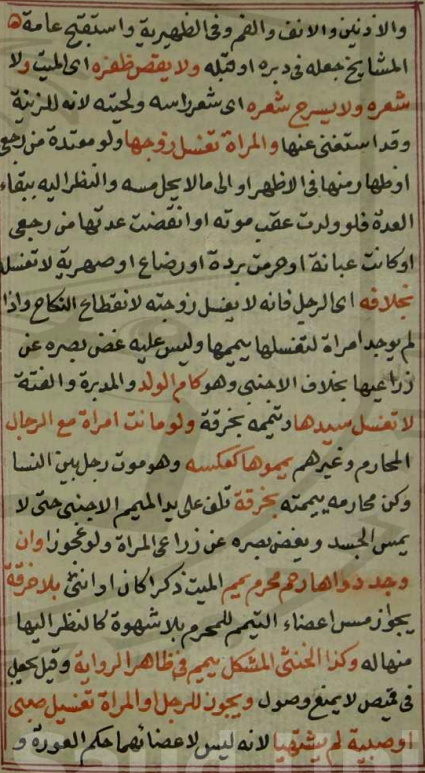 والاذنين والانف والفم وفى الظهيرية واستقبح عامة
المشايخ جعله فى دبره او قبله ولا يقص ظفره اى الميت ولا
شعره ولا يسرح شعره اى شعر راسه ولحيته لانه للزينة
وقد استغنى عنها والمراة تغسل زوجها ولو معتدة من رجعى
او ظهار منها فى الاظهر او الى مالا يحل مسه والنظر اليه ببقاء
العدة فلو ولدت عقب موته او انقضت عدتها من رجعى
او كانت مبانة او حرمت بردة او رضاع او صهرية لا تغسله
بخلافه اى الرجل فانه لا يغسل زوجته لانقطاع النكاح واذا
لم يوجد امراة لتغسلها ييممها وليس عليه غض بصره عن
زراعيها بخلاف الاجنبى وهو كام الولد والمدبرة والقنة
لا تغسل سيدها وتيممه بخرقة ولو ماتت امراة مع الرجال
المحارم وغيرهم يمموها كعكسه وهو موت رجل بين النسا
وكن محارمه ييممنه بخرقة تلف على يد الميمم الاجنبى حتى لا
يمس الجسد ويغض بصره عن زراعى المراة ولو عجوزا وان
وجد ذوا رحم محرم يمم الميت ذكرا كان او انثى بلا خرقة
يجواز مس اعضاء التيمم للمحرم بلا شهوة كالنظر اليها
منها له وكذا الخنثى المشكل ييمم فى ظاهر الرواية وقيل يجعل
فى قميص لا يمنع وصول ويجوز للرجل او المراة تغسيل صبى
او صبية لم يشتهيا لانه ليس لاعضائهما حكم العورة و